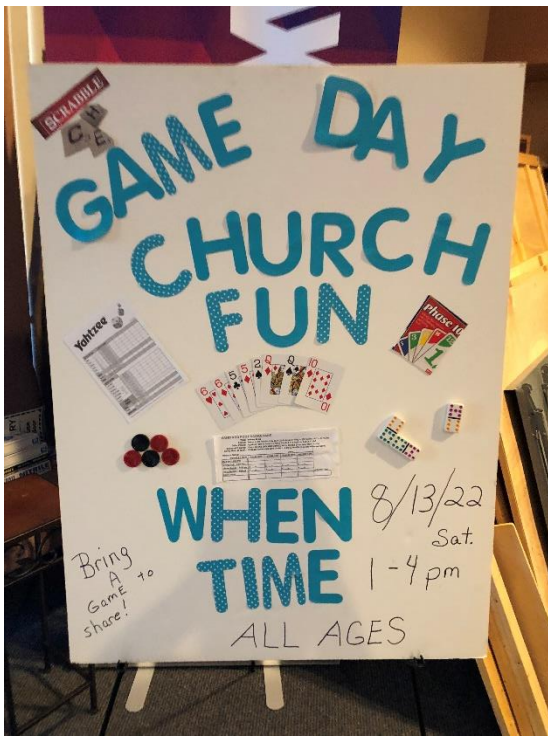 SCRABBLE
C H
E
GAME DAY
CHURCH
FUN
Yahtzee
Phase 10
6 6 5 5 2 Q Q 10
10
WHEN 8/13/22
Sat.
TIME 1-4 pm
Bring
A
GamE to
share!
ALL AGES